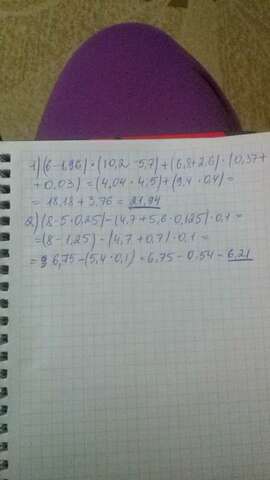 1) (6-1,96)·(10,2-5,7)+(6,8+2,6)·(0,37+
+0,03)=(4,04·4,5)+(9,4·0,4)=
=18,18+3,76=21,94
2) (8-5·0,25)-(4,7+5,6·0,125)·0,1=
=(8-1,25)-(4,7+0,7)·0,1=
=6,75-(5,4·0,1)=6,75-0,54=6,21